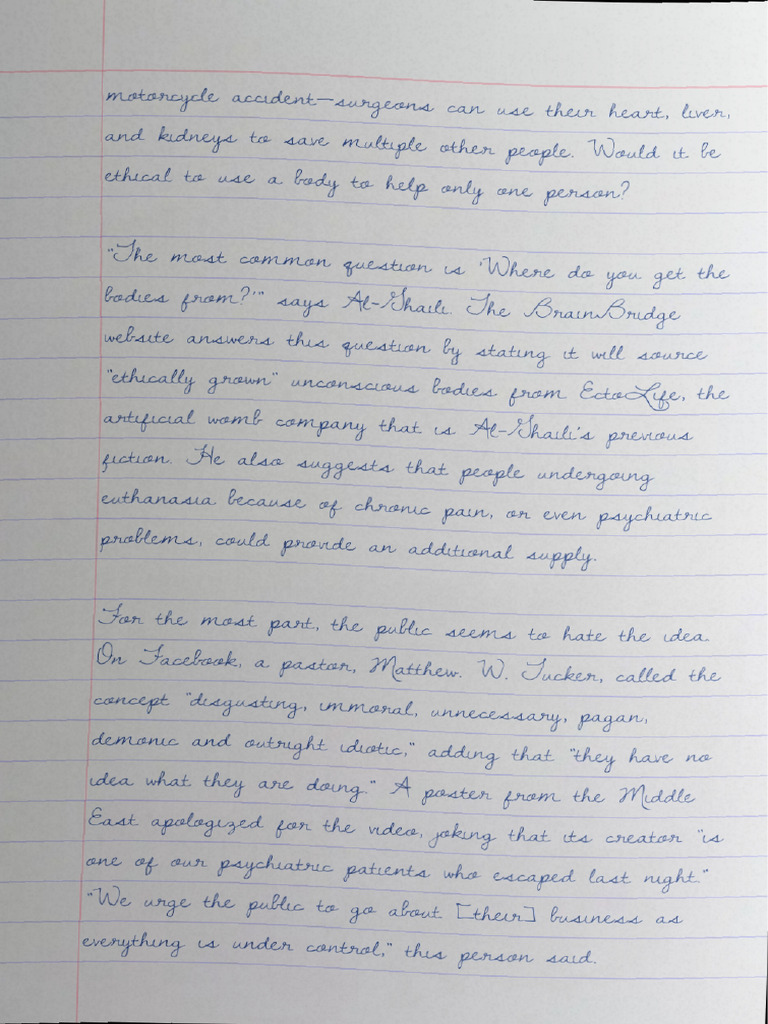 motorcycle accident—surgeons can use their heart, liver,
and kidneys to save multiple other people. Would it be
ethical to use a body to help only one person?
"The most common question is 'Where do you get the
bodies from?'" says Al-Ghaili. The BrainBridge
website answers this question by stating it will source
"ethically grown" unconscious bodies from EctoLife, the
artificial womb company that is Al-Ghaili's previous
fiction. He also suggests that people undergoing
euthanasia because of chronic pain, or even psychiatric
problems, could provide an additional supply.
For the most part, the public seems to hate the idea.
On Facebook, a pastor, Matthew. W. Tucker, called the
concept "disgusting, immoral, unnecessary, pagan,
demonic and outright idiotic," adding that "they have no
idea what they are doing." A poster from the Middle
East apologized for the video, joking that its creator "is
one of our psychiatric patients who escaped last night."
"We urge the public to go about [their] business as
everything is under control," this person said.